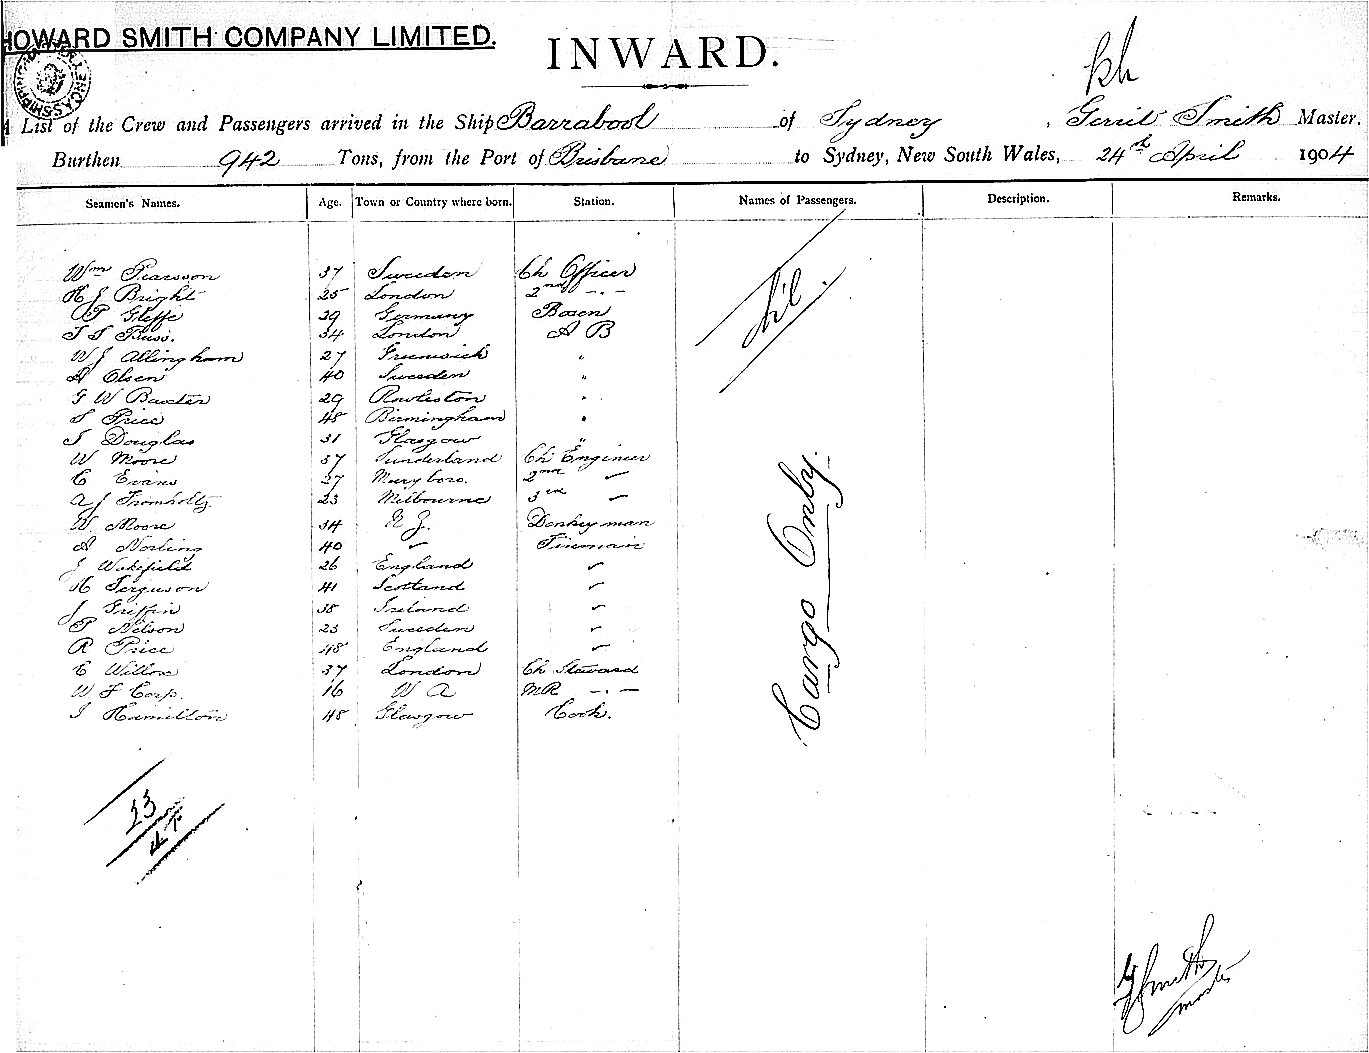 HOWARD SMITH COMPANY LIMITED.
INWARD.
A List of the Crew and Passengers arrived in the Ship Barrabool of Sydney, Gerrit Smith Master.
Burthen 942 Tons, from the Port of Brisbane to Sydney, New South Wales, 24th April 1904
Seamen's Names. Age. Town or Country where born. Station. Names of Passengers. Description. Remarks.
Wm Pearsson 37 Sweden Ch Officer
H J Bright 25 London 2nd -.-
P Gleffe 39 Germany Bosen
34 London A B
W J Allingham 27 Greenwich "
A Olsen 40 Sweden "
G W Baxter 29 Rowleston "
S Price 48 Birmingham "
J Douglas 31 Glasgow "
W Moore 37 Sunderland Ch Engineer
C Evans 27 Maryboro. 2nd "
A J Fromholtz 23 Melbourne 3rd "
W Moore 34 N Z. Donkeyman
A Norling 40 " Fireman
J Wakefield 26 England "
H Ferguson 41 Scotland "
J Griffin 38 Ireland "
P Nelson 23 Sweden "
R Price 48 England "
C Willox 37 London Ch Steward
W F Corp. 16 W A MR -.-
J Hamilton 48 Glasgow Cook.
Nil.
Cargo Only.
23
G Smith
master